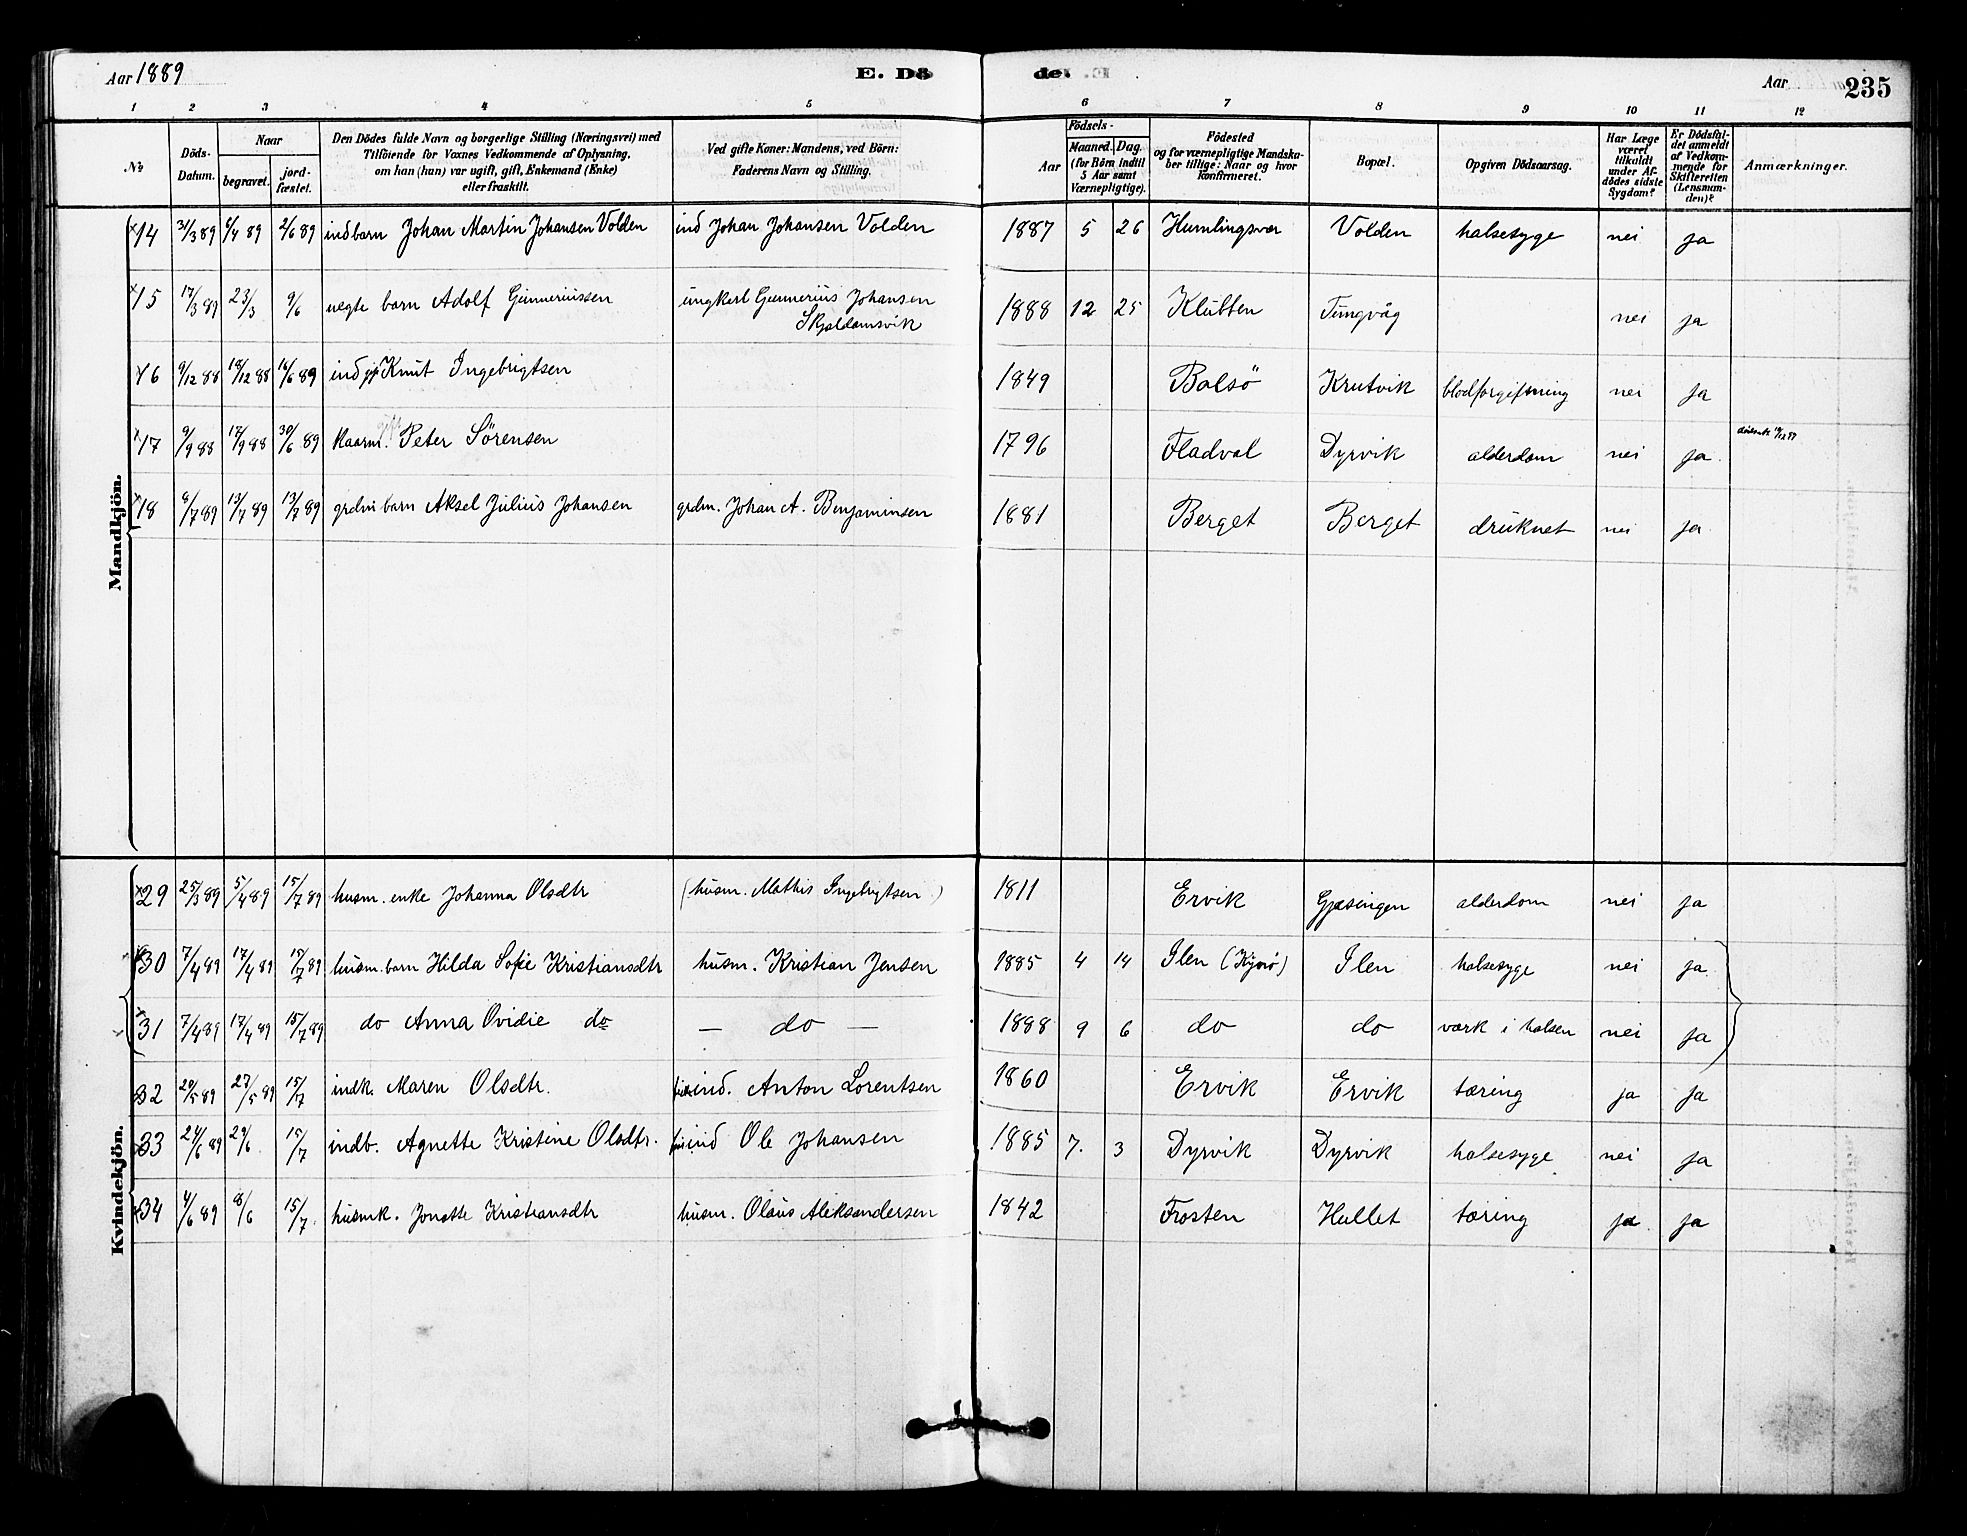 Aar 1889
E. Dö
de.
Aar
235
1 2 3 4 5 6 7 8 9 10 11 12
No
Döds-Datum.
Naar
begravet.
jord-fæstet.
Den Dödes fulde Navn og borgerlige Stilling (Næringsvei) med
Tilföiende for Voxnes Vedkommende af Oplysning,
om han (hun) var ugift, gift, Enkemand (Enke)
eller fraskilt.
Ved gifte Koner: Mandens, ved Börn:
Faderens Navn og Stilling.
Födsels-
Aar
Maaned. Dag.
(for Börn indtil
5 Aar samt
Værnepligtige).
Födested
og for værnepligtige Mandska-
ber tillige: Naar og hvor
konfirmeret.
Bopæl.
Opgiven Dödsaarsag.
Har Læge
været
tilkaldt
under Af-
dödes sidste
Sygdom?
Er Dödsfal-
det anmeldt
af Vedkom-
mende for
Skifteretten
(Lensman-
den)?
Anmærkninger.
Mandkjön.
14 31/3 89 6/4 89 2/6 89 indbarn Johan Martin Johansen Volden ind Johan Johansen Volden 1887 5 26 Humlingsvær Volden halsesyge nei ja
15 17/3 89 23/3 9/6 uegte barn Adolf Gunneriussen ungkarl Gunnerius Johansen 1888 12 25 Klubben Tungvåg nei ja
Skjaldamsvik
16 9/12 88 18/12 88 16/6 89 ind gift Knut Ingebrigtsen 1849 Bolsö Krutvik blodforgiftning nei ja
17 9/9 88 17/9 88 30/6 89 kaarm. Peter Sörensen 1796 Fladval Dyrvik alderdom nei ja
18 6/7 89 13/7 89 13/7 89 grdm barn Aksel Julius Johansen grdm. Johan A. Benjaminsen 1881 Berget Berget druknet nei ja
Kvindekjön.
29 25/3 89 5/4 89 15/7 89 husm. enke Johanna Olsdtr (husm. Mathis Ingebrigtsen) 1811 Ervik Gjæsingen alderdom nei ja
30 7/4 89 17/4 89 15/7 89 husm. barn Hilda Sofie Kristiansdtr husm. Kristian Jensen 1885 4 14 Ilen (Kjørö) Ilen halsesyge nei ja
31 7/4 89 17/4 89 15/7 89 do Anna Ovidie do — do — 1888 9 6 do do værk i halsen nei ja
32 20/5 89 27/5 89 15/7 indk. Maren Olsdtr. ind. Anton Lorentsen 1860 Ervik Ervik tæring ja ja
33 24/6 89 29/6 15/7 indb. Agnette Kristine Olsdtr. ind Ole Johansen 1885 7. 3 Dyrvik Dyrvik halsesyge nei ja
34 4/6 89 8/6 15/7 husmk. Jonette Kristiansdtr husm. Olaus Aleksandersen 1842 Frosten Hallet tæring ja ja